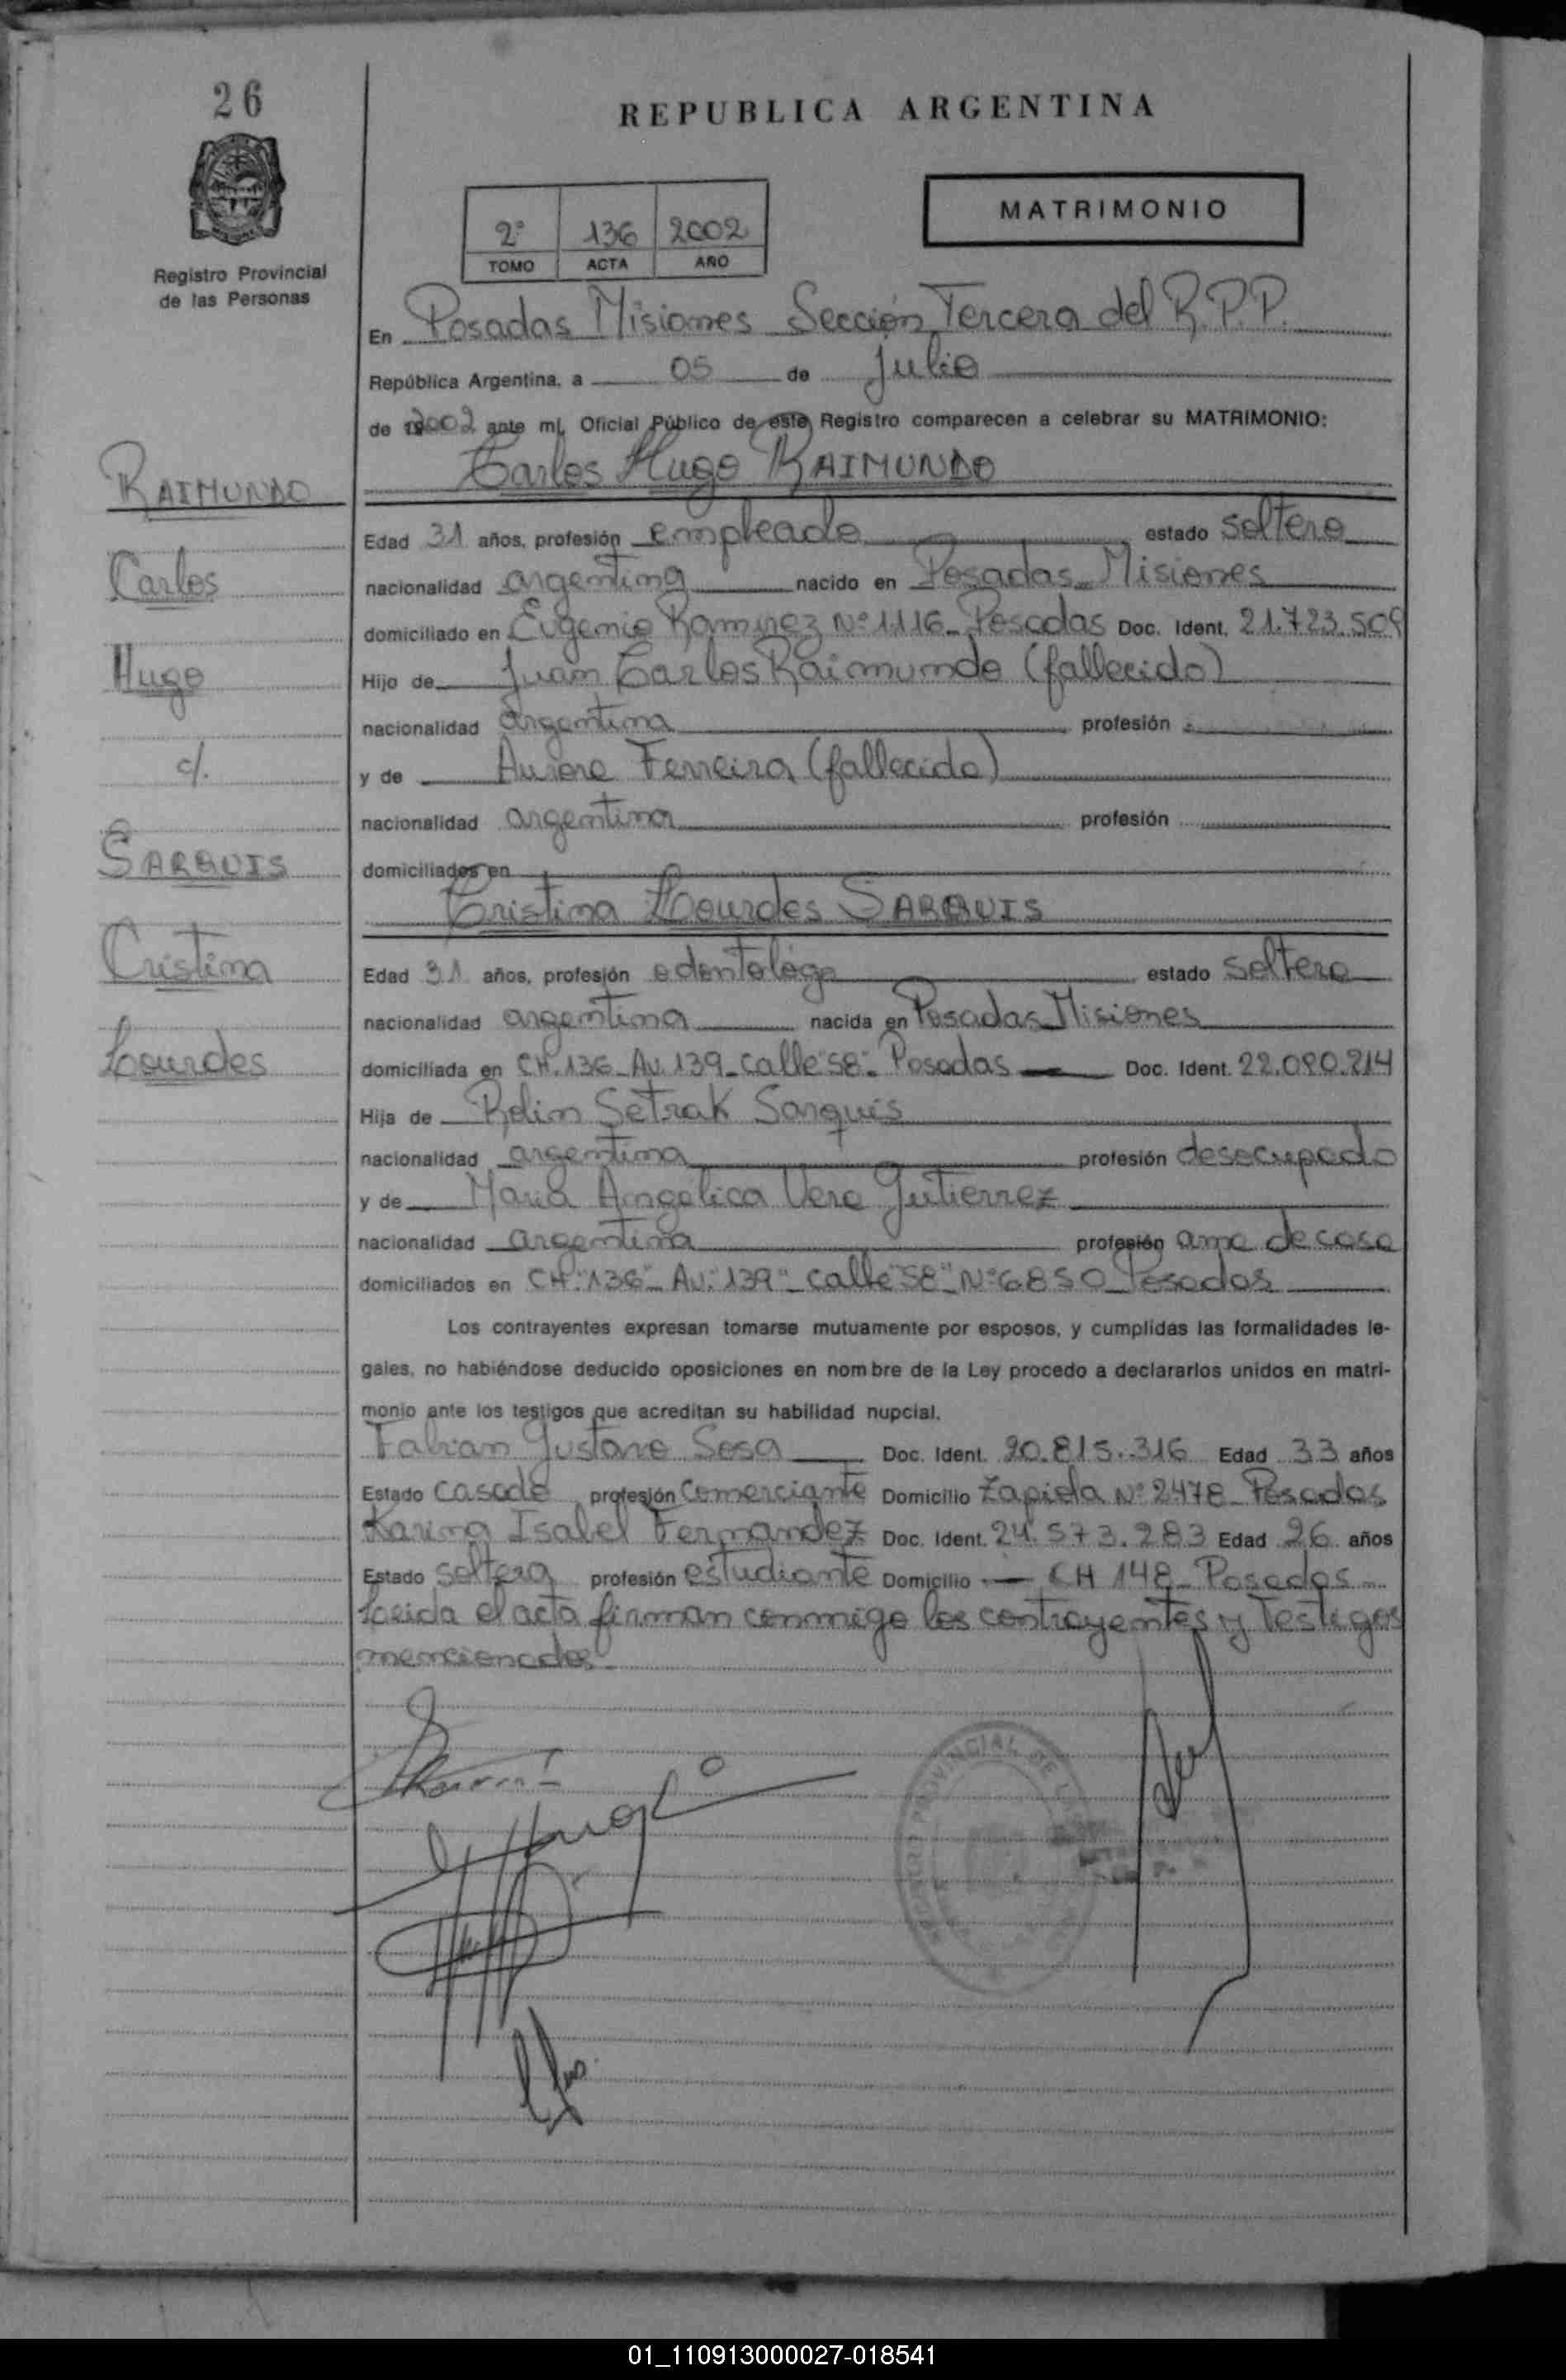 26
REPUBLICA ARGENTINA
Registro Provincial
de las Personas
2º 136 2002
TOMO ACTA AÑO
MATRIMONIO
En Posadas Misiones Sección Tercera del R.P.P.
República Argentina, a 05 de Julio
de 2002 ante mí, Oficial Público de este Registro comparecen a celebrar su MATRIMONIO:
Carlos Hugo RAIMUNDO
RAIMUNDO
Carlos
Hugo
c/.
SARQUIS
Cristina
Lourdes
Edad 31 años, profesión empleado estado soltero
nacionalidad argentina nacido en Posadas Misiones
domiciliado en Eugenio Ramirez Nº 1116 - Posadas Doc. Ident. 21.723.509
Hijo de Juan Carlos Raimundo (fallecido)
nacionalidad argentina profesión
y de Aurora Ferreira (fallecida)
nacionalidad argentina profesión
domiciliados en
Cristina Lourdes SARQUIS
Edad 31 años, profesión odontóloga estado soltera
nacionalidad argentina nacida en Posadas Misiones
domiciliada en CH. 136 - Av. 139 - calle "58" - Posadas Doc. Ident. 22.090.214
Hija de Rolin Setrak Sarquis
nacionalidad argentina profesión desocupado
y de Maria Angélica Vera Gutierrez
nacionalidad argentina profesión ama de casa
domiciliados en CH. "136" - Av. "139" - calle "58" - Nº 6850 Posadas
Los contrayentes expresan tomarse mutuamente por esposos, y cumplidas las formalidades le-
gales, no habiéndose deducido oposiciones en nombre de la Ley procedo a declararlos unidos en matri-
monio ante los testigos que acreditan su habilidad nupcial.
Fabian Gustavo Sosa Doc. Ident. 20.815.316 Edad 33 años
Estado casado profesión comerciante Domicilio Zapiola Nº 2478 - Posadas
Karina Isabel Fernandez Doc. Ident. 24.573.283 Edad 26 años
Estado soltera profesión estudiante Domicilio - CH 148 - Posadas
Leida el acta firman conmigo los contrayentes y testigos
mencionados
01_110913000027-018541